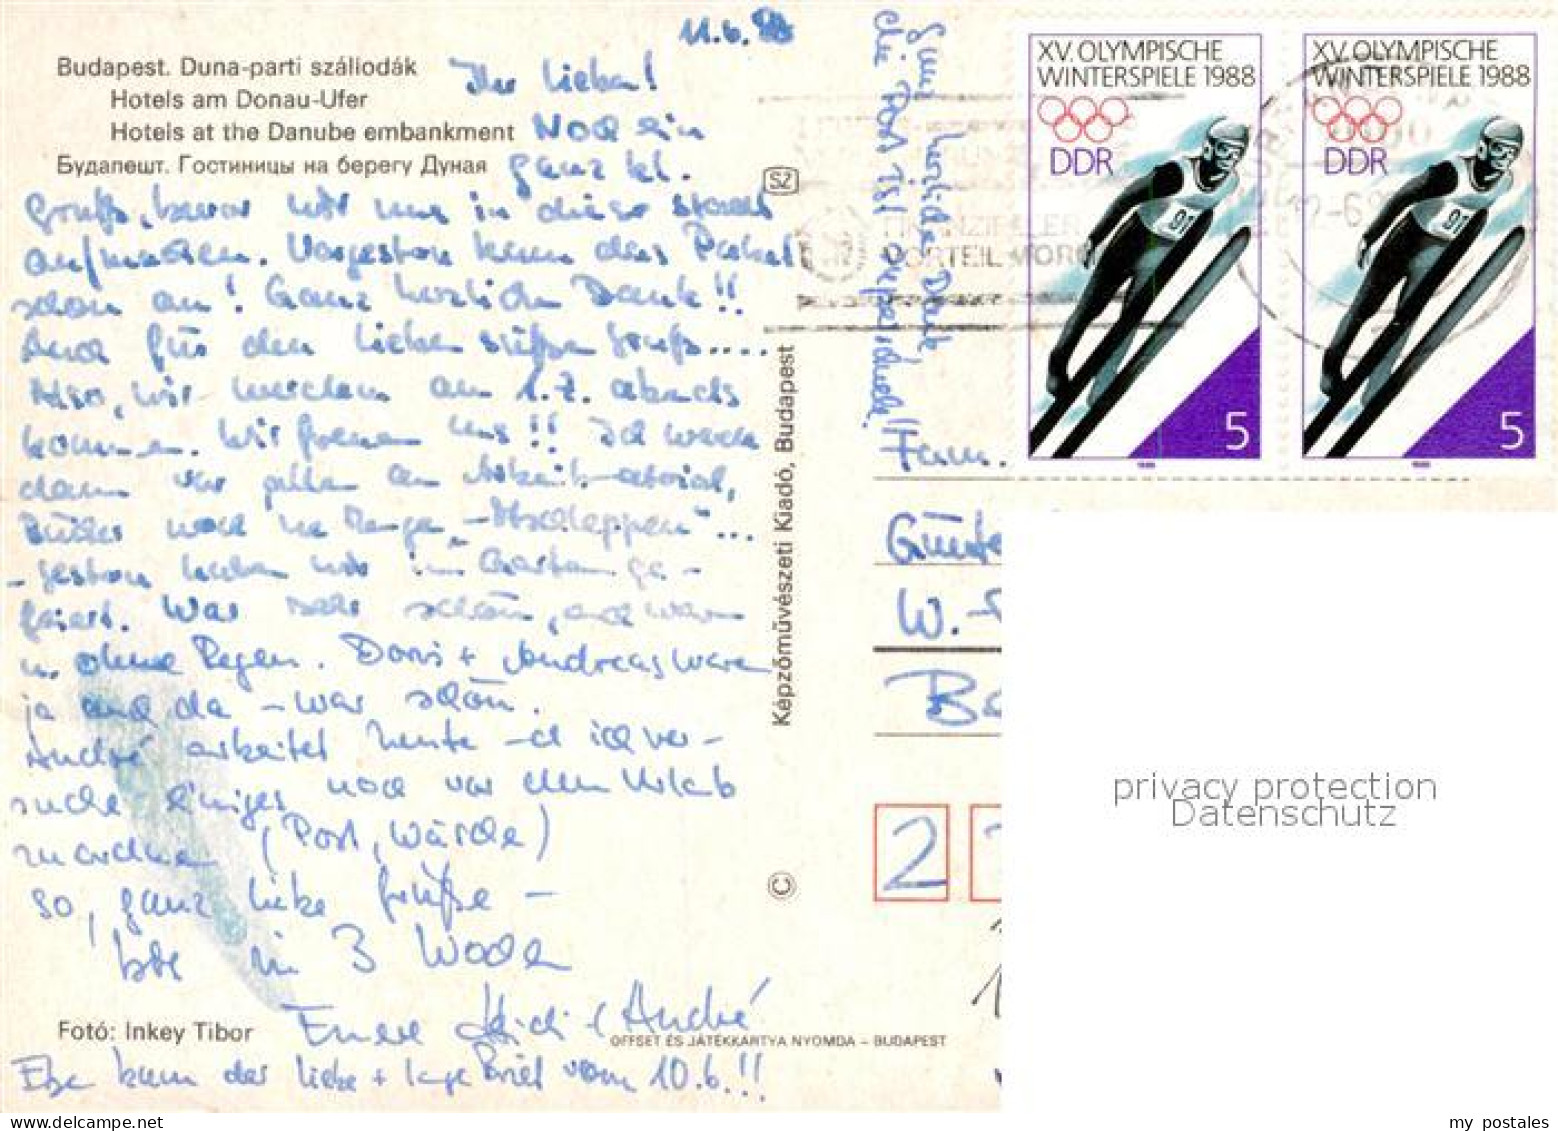 11.6.88
Budapest. Duna-parti szállodák
Hotels am Donau-Ufer
Hotels at the Danube embankment
Будапешт. Гостиницы на берегу Дуная
Ihr Lieben!
Noch ein
ganz kl.
Gruß, bevor wir uns in dieser Stadt
aufmachen. Vorgestern kam das Paket
schon an! Ganz herzlichen Dank!!
Auch für den lieben süßen Gruß....
Also, wir werden am 1.7. abends
kommen. Wir freuen uns!! Ich werde
dann vor allem an Arbeitsmaterial,
Bücher noch 'ne Menge „Abschleppen"...
- gestern haben wir im Garten ge-
feiert. War sehr schön, auch warm
u. ohne Regen. Doris + Andreas waren
ja auch da - war schön.
André arbeitet heute - ich ver-
suche einiges noch vor dem Urlaub
zu ordnen (Post, Wäsche)
So, ganz liebe Grüße -
bis in 3 Wochen
Eure Heidi + André
Foto: Inkey Tibor
OFFSET ÉS JÁTÉKKÁRTYA NYOMDA – BUDAPEST
Ebe kam der liebe + lange Brief vom 10.6.!!
SZ
Képzőművészeti Kiadó, Budapest
©
herzlichen Dank
die Post ist
XV. OLYMPISCHE
WINTERSPIELE 1988
DDR
91
5
1988
XV. OLYMPISCHE
WINTERSPIELE 1988
DDR
91
5
1988
Fam.
Günte
W.-
Ba
2
privacy protection
Datenschutz
my postales